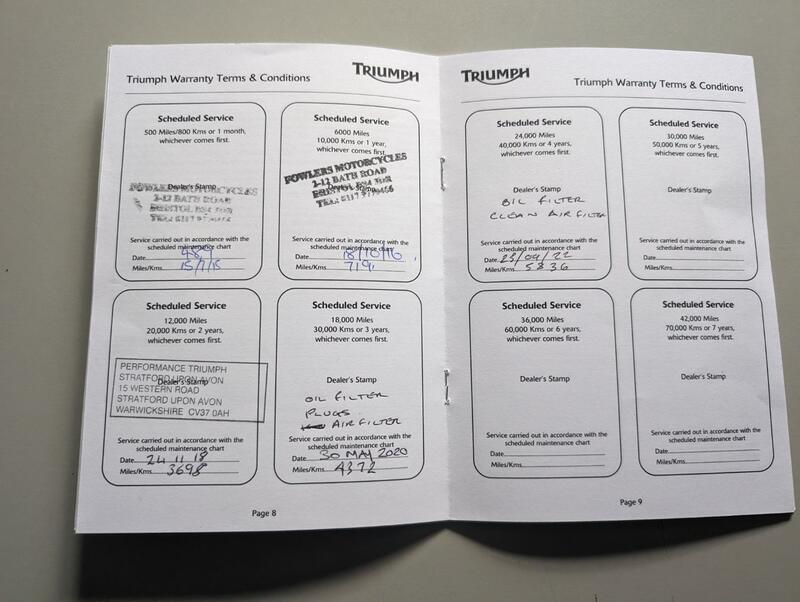 Triumph Warranty Terms & Conditions
TRIUMPH
Scheduled Service
500 Miles/800 Kms or 1 month,
whichever comes first.
Dealer's Stamp
FOWLERS MOTORCYCLES
2-12 BATH ROAD
BRISTOL BS4
TEL: 0117
Service carried out in accordance with the
scheduled maintenance chart
Date
Miles/Kms 15/7/15
Scheduled Service
6000 Miles
10,000 Kms or 1 year,
whichever comes first.
FOWLERS MOTORCYCLES
2-12 BATH ROAD
Dealer's Stamp
BRISTOL BS4
TEL: 0117
Service carried out in accordance with the
scheduled maintenance chart
Date 18/10/16
Miles/Kms
Scheduled Service
12,000 Miles
20,000 Kms or 2 years,
whichever comes first.
PERFORMANCE TRIUMPH
STRATFORD UPON AVON
Dealer's Stamp
15 WESTERN ROAD
STRATFORD UPON AVON
WARWICKSHIRE CV37 0AH
Service carried out in accordance with the
scheduled maintenance chart
Date 24 11 18
Miles/Kms 3698
Scheduled Service
18,000 Miles
30,000 Kms or 3 years,
whichever comes first.
Dealer's Stamp
OIL FILTER
PLUGS
AIR FILTER
Service carried out in accordance with the
scheduled maintenance chart
Date 30 MAY 2020
Miles/Kms 4372
Page 8
TRIUMPH
Triumph Warranty Terms & Conditions
Scheduled Service
24,000 Miles
40,000 Kms or 4 years,
whichever comes first.
Dealer's Stamp
OIL FILTER
CLEAN AIR FILTER
Service carried out in accordance with the
scheduled maintenance chart
Date 23/04/22
Miles/Kms 5836
Scheduled Service
30,000 Miles
50,000 Kms or 5 years,
whichever comes first.
Dealer's Stamp
Service carried out in accordance with the
scheduled maintenance chart
Date
Miles/Kms
Scheduled Service
36,000 Miles
60,000 Kms or 6 years,
whichever comes first.
Dealer's Stamp
Service carried out in accordance with the
scheduled maintenance chart
Date
Miles/Kms
Scheduled Service
42,000 Miles
70,000 Kms or 7 years,
whichever comes first.
Dealer's Stamp
Service carried out in accordance with the
scheduled maintenance chart
Date
Miles/Kms
Page 9